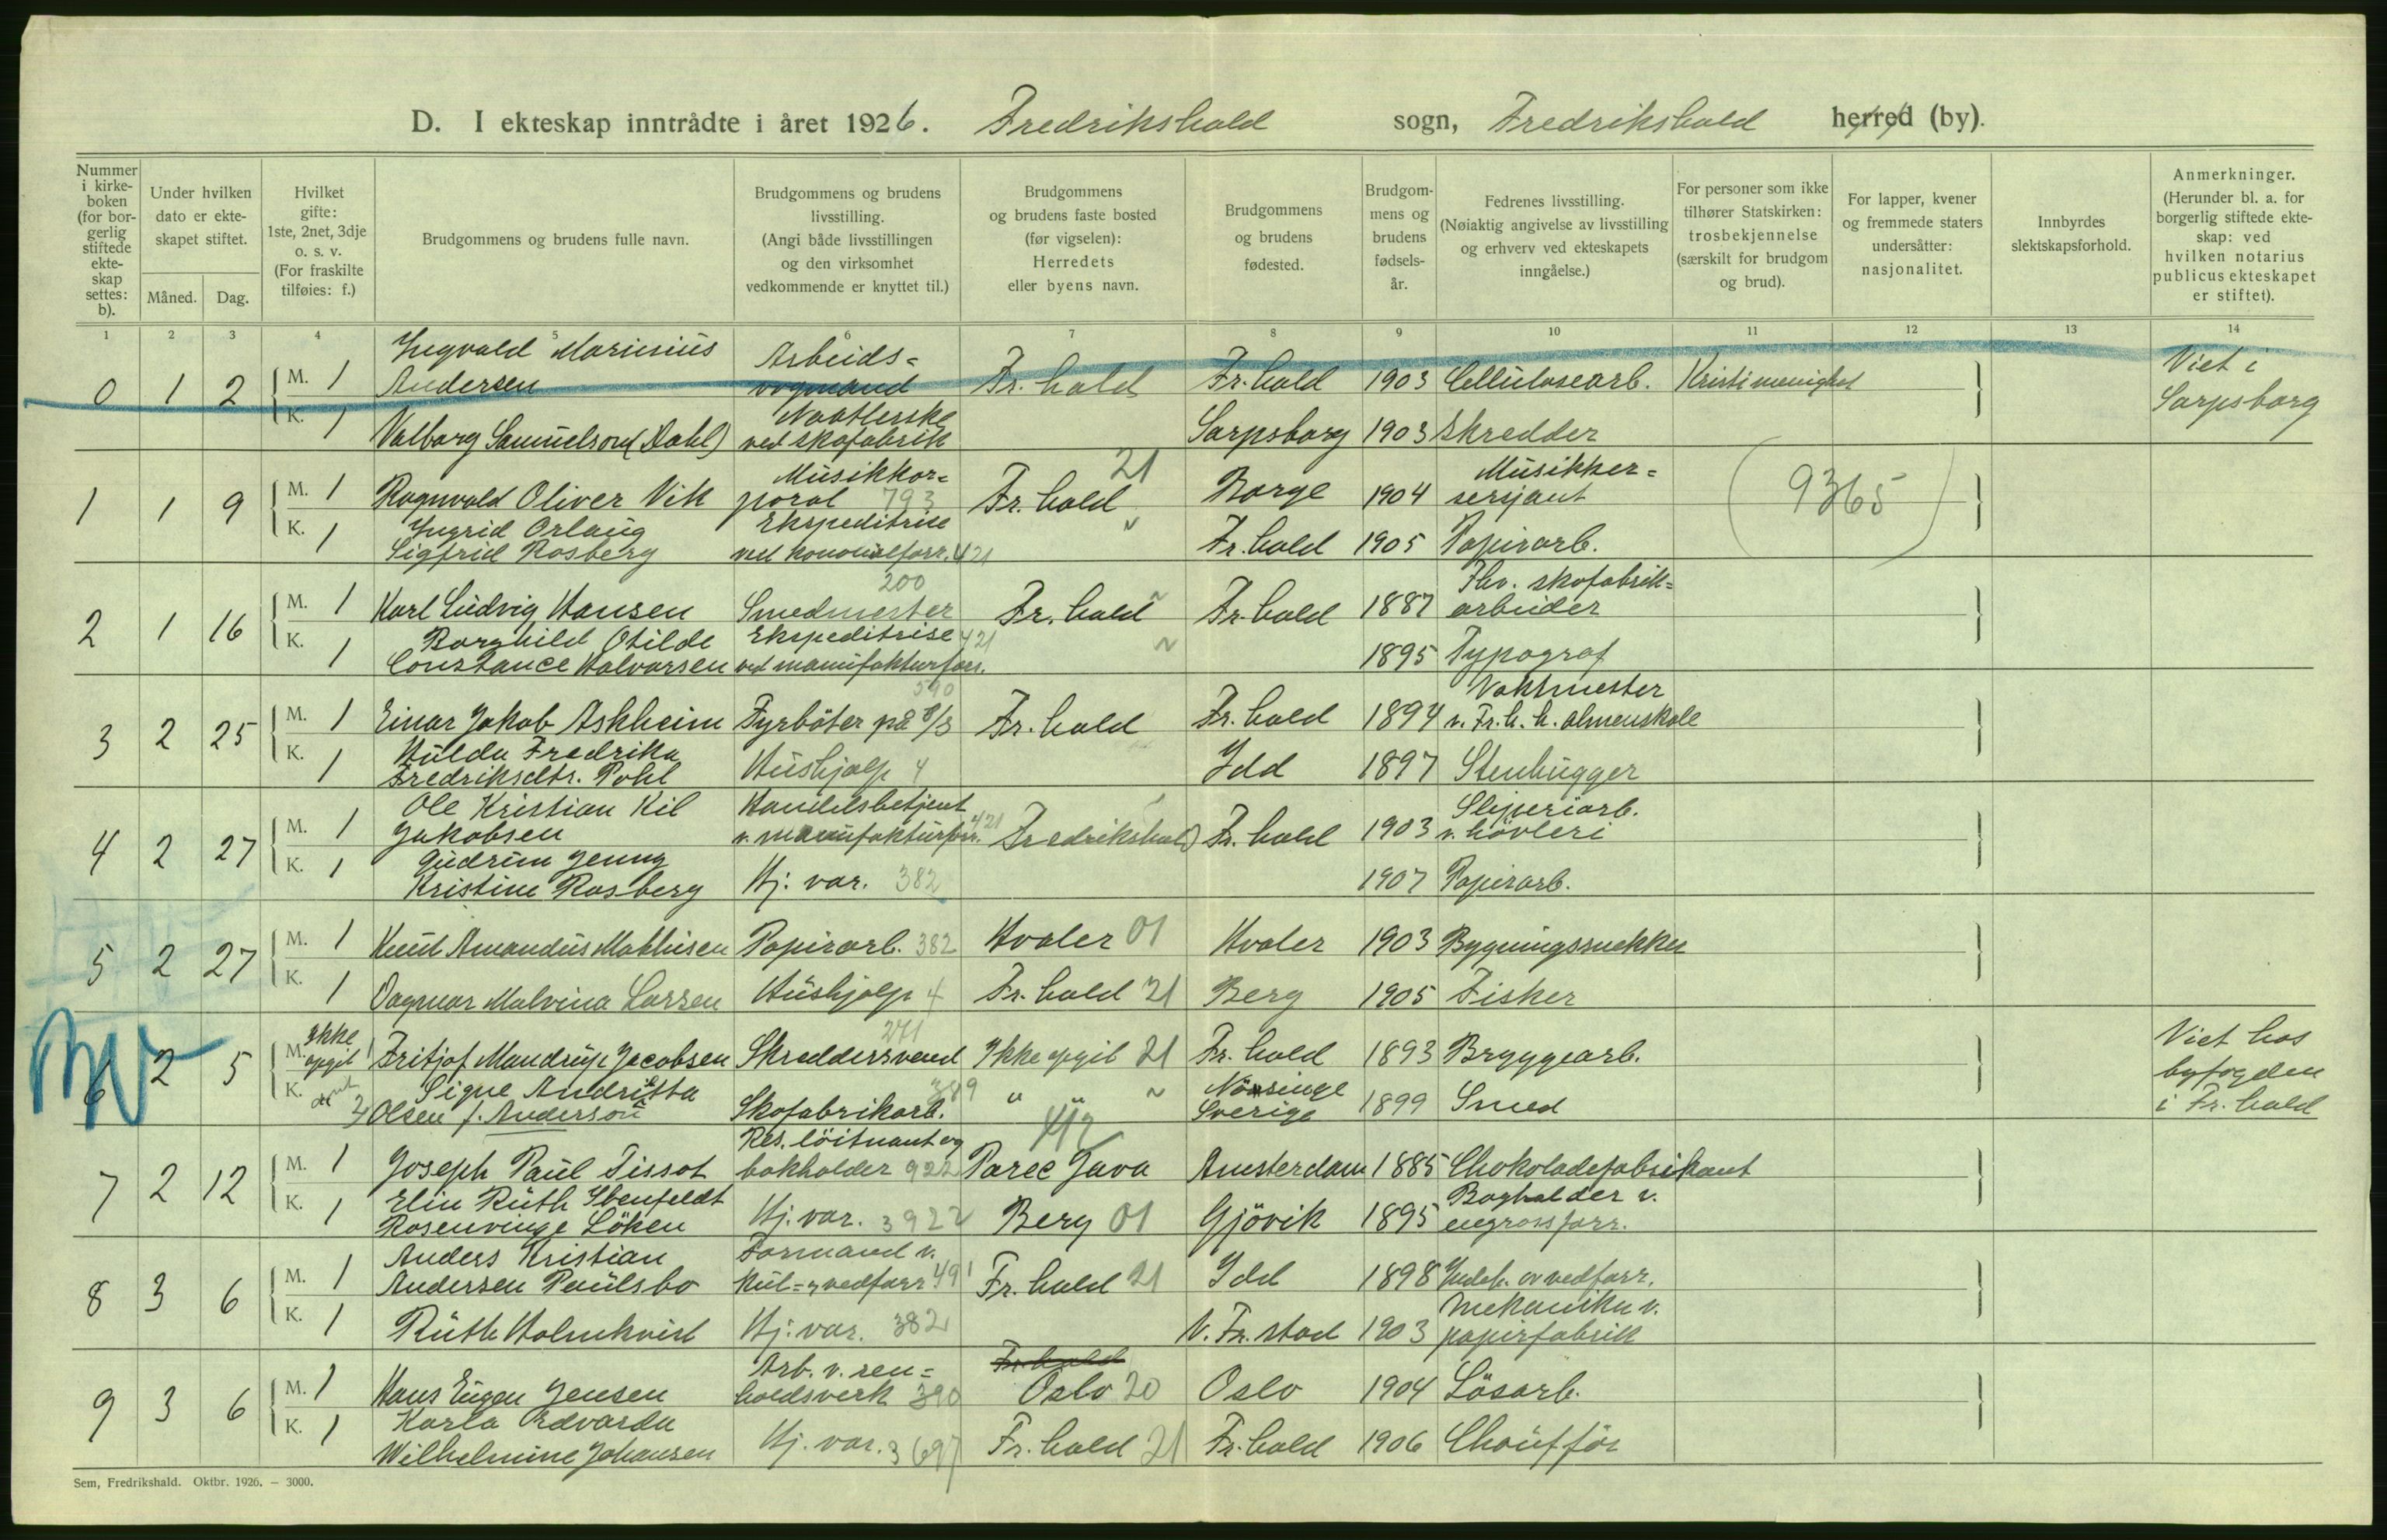 D. I ekteskap inntrådte i året 1926. Fredrikshald sogn, Fredrikshald herred (by).
Nummer i kirke-boken (for bor-gerlig stiftede ekte-skap settes: b).
Under hvilken dato er ekte-skapet stiftet.
Måned. Dag.
Hvilket gifte: 1ste, 2net, 3dje o. s. v. (For fraskilte tilføies: f.)
Brudgommens og brudens fulle navn.
Brudgommens og brudens livsstilling. (Angi både livsstillingen og den virksomhet vedkommende er knyttet til.)
Brudgommens og brudens faste bosted (før vigselen): Herredets eller byens navn.
Brudgommens og brudens fødested.
Brudgom-mens og brudens fødsels-år.
Fedrenes livsstilling. (Nøiaktig angivelse av livsstilling og erhverv ved ekteskapets inngåelse.)
For personer som ikke tilhører Statskirken: trosbekjennelse (særskilt for brudgom og brud).
For lapper, kvener og fremmede staters undersåtter: nasjonalitet.
Innbyrdes slektskapsforhold.
Anmerkninger. (Herunder bl. a. for borgerlig stiftede ekte-skap: ved hvilken notarius publicus ekteskapet er stiftet).
1 2 3 4 5 6 7 8 9 10 11 12 13 14
0 1 2 M. 1 Ingvald Marinius Andersen Arbeids=vognmand Fr.hald Fr.hald 1903 Cellulosearb. Kristi menighet Viet i Sarpsborg
K. 1 Valborg Samuelson (Dahl) Naatlerske ved skofabrik Sarpsborg 1903 Skredder
1 1 9 M. 1 Ragnvald Oliver Vik Musikkor=poral 793 Fr.hald 21 Borge 1904 Musikker=sersjant (9365)
K. 1 Ingrid Orlaug Sigfrid Rosberg Ekspeditrise ved kolonialforr. 421 Fr.hald 1905 Papirarb.
2 1 16 M. 1 Karl Ludvig Hansen Smedmester 200 Fr.hald Fr.hald 1887 Fhv. skofabrik=arbeider
K. 1 Borghild Otilde Constance Halvorsen Ekspeditrise 421 ved manufakturforr. 1895 Typograf
3 2 25 M. 1 Einar Jakob Askheim Fyrböter på D/S 590 Fr.hald Fr.hald 1894 Vaktmester v. Fr.h. h. almenskole
K. 1 Hulda Fredrika Fredriksdtr. Pohl Hushjælp 4 Idd 1897 Stenhugger
4 2 27 M. 1 Ole Kristian Kil Jakobsen Handelsbetjent v. manufakturforr. 421 Fredrikshald Fr.hald 1903 Sliperiarb. v. hövleri
K. 1 Gudrun Jenny Kristine Rosberg Hj. vær. 382 1907 Papirarb.
5 2 27 M. 1 Knut Amandus Mathisen Papirarb. 382 Hvaler 01 Hvaler 1903 Bygningssnekker
K. 1 Dagmar Malvina Larsen Hushjælp 4 Fr.hald 21 Berg 1905 Fisker
6 2 5 M. Ikke opgit 1 Fritjof Mandrup Jacobsen Skreddersvend 271 Ikke opgit 21 Fr.hald 1893 Bryggearb. Viet hos byfogden i Fr.hald
K. 2 Signe Andrietta Olsen f. Anderson Skofabrikarb. 389 " " Sverige 1899 Smed
7 2 12 M. 1 Joseph Paul Tissot Res. löitnant og bokholder 922 Paree Java Amsterdam 1885 Chokoladefabrikant
K. 1 Elin Ruth Ibenfeldt Rosenvinge Löken Hj. vær. 3922 Berg 01 Gjövik 1895 Bogholder v. engrosforr.
8 3 6 M. 1 Anders Kristian Andersen Paulsbo Formand v. kul=&vedforr 491 Fr.hald 21 Idd 1898 Indeh. av vedforr.
K. 1 Ruth Holmkvist Hj. vær. 382 V. Fr.stad 1903 Mekaniker v. papirfabrik
9 3 6 M. 1 Hans Eugen Jensen Arb. v. ren=holdsverk 390 Fr.hald Oslo 20 Oslo 1904 Lösarb.
K. 1 Karla Edvarda Wilhelmine Johansen Hj. vær. 3697 Fr.hald 21 Fr.hald 1906 Chaufför
Sem, Fredrikshald. Oktbr. 1926. — 3000.